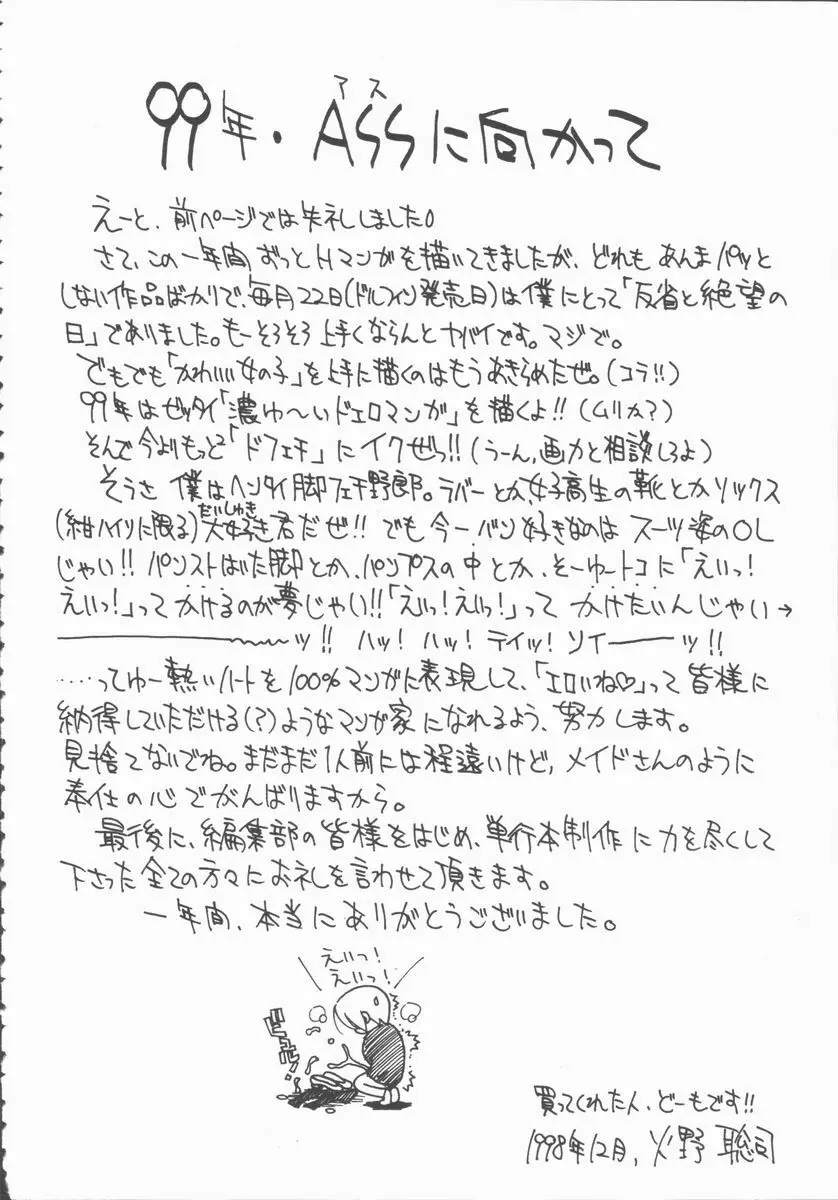 アス
99年・ASSに向かって
えーと、前ページでは失礼しました。
さて、この一年間ずっとHマンガを描いてきましたが、どれもあんまパッと
しない作品ばかりで、毎月22日(ドルフィン発売日)は僕にとって「反省と絶望の
日」でありました。もーそろそろ上手くならんとヤバイです。マジで。
でもでも「かわいい女の子」を上手に描くのはもうあきらめたぜ。(コラ!!)
99年はゼッタイ「濃ゆ〜いドエロマンガ」を描くよ!!(ムリか?)
そんで今よりもっと「ドフェチ」にイクぜっ!!(うーん、画力と相談しろよ)
そうさ僕はヘンタイ脚フェチ野郎。ラバーとか、女子高生の靴とかソックス
だいしゅき
(紺ハイソに限る)大好き君だぜ!!でも今一バン好きなのはスーツ姿のOL
じゃい!!パンストはいた脚とか、パンプスの中とか、そーゆートコに「えいっ!
えいっ!」ってかけるのが夢じゃい!!「えいっ!えいっ!」ってかけたいんじゃい→
――――――〜〜〜ッ!!ハッ!ハッ!テイッ!ソイ――ッ!!
‥‥‥ってゆー熱いハートを100%マンガに表現して、「エロいね♡」って皆様に
納得していただける(?)ようなマンガ家になれるよう、努力します。
見捨てないでね。まだまだ1人前には程遠いけど、メイドさんのように
奉仕の心でがんばりますから。
最後に、編集部の皆様をはじめ、単行本制作に力を尽くして
下さった全ての方々にお礼を言わせて頂きます。
一年間、本当にありがとうございました。
えいっ!
えいっ!
買ってくれた人、どーもです!!
1998年12月、火野聡司